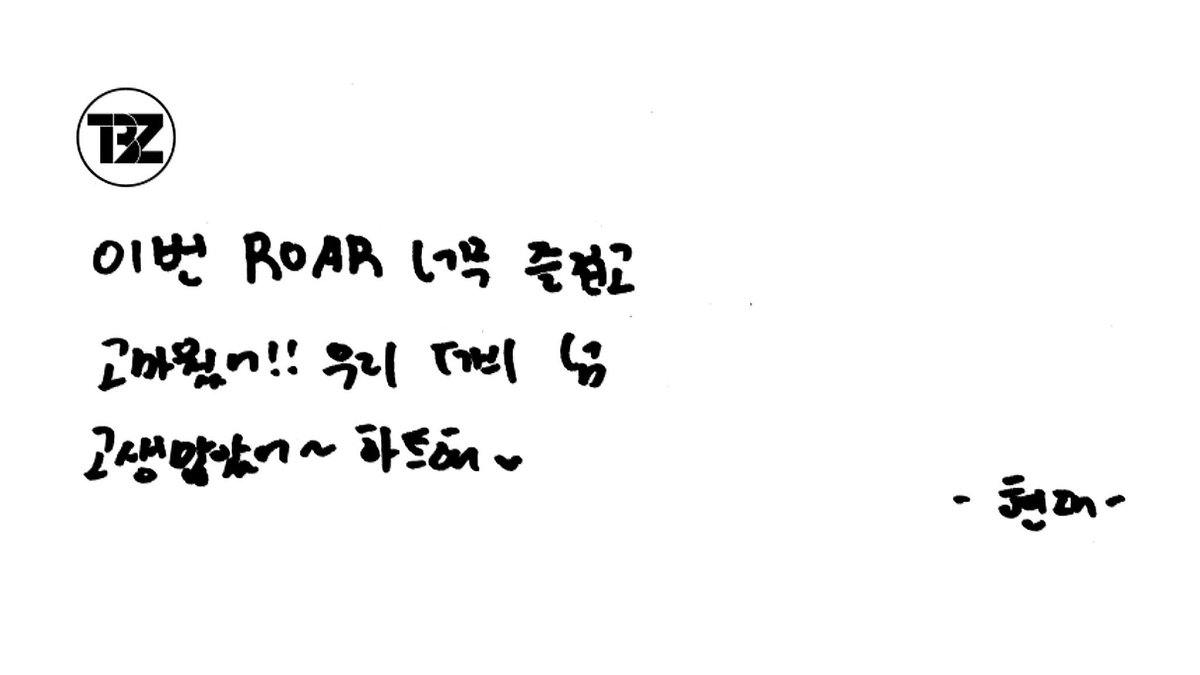 TBZ
이번 ROAR 너무 즐겁고
고마웠어!! 우리 더비 넘
고생많았어~ 하트해
- 현재 -